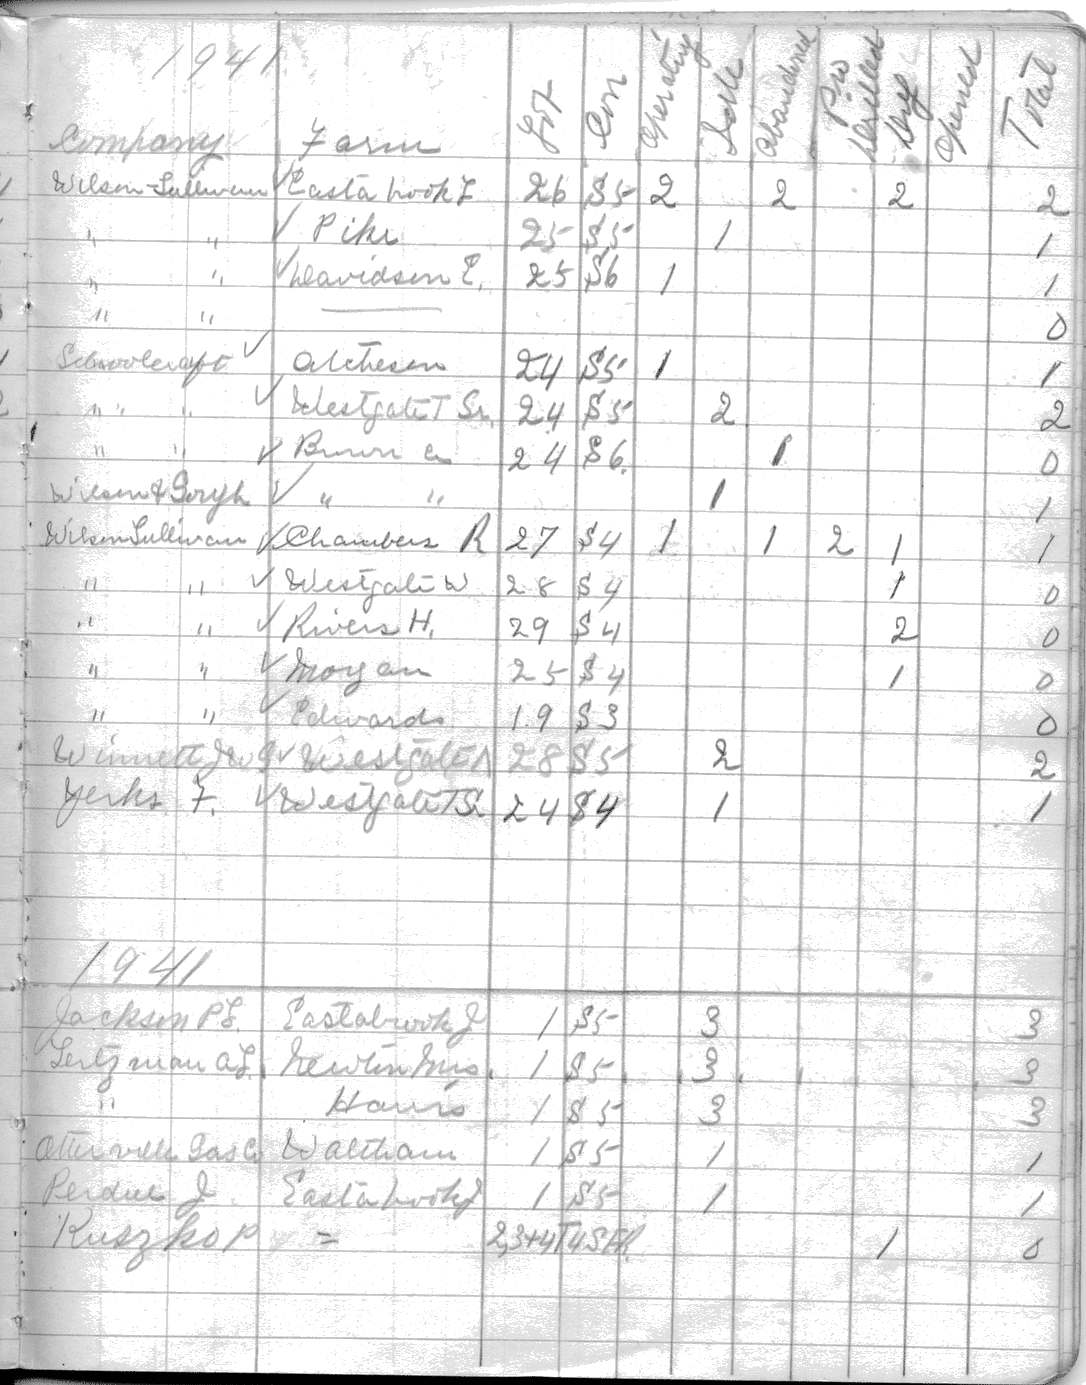 1941
Company Farm Lot Con Operating Idle Abandoned Pro Drilled Dry Opened Total
Wilson-Sullivan ✓ Eastabrook J 26 S5 2 2 2 2
" " ✓ Pike 25 S5 1 1
" " ✓ Davidson E. 25 S6 1 1
" " — 0
Schoolcraft ✓ Atcheson 24 S5 1 1
" " " ✓ Westgate T Sr. 24 S5 2 2
" " ✓ Brown 24 S6. 1 0
Wilson & ✓ " " 1 1
Wilson Sullivan ✓ Chambers R 27 S4 1 1 2 1 1
" " ✓ Westgate W 28 S4 1 0
" " ✓ Rivers H. 29 S4 2 0
" " ✓ Morgan 25 S4 1 0
" " ✓ Edwards 19 S3 0
Winnett ✓ Westgate A 28 S5 2 2
Yerks F. ✓ Westgate T Sr. 24 S4 1 1
1941
Jackson P.L. Eastabrook J 1 S5 3 3
Lertzman A.L. Newton 1 S5 3 3
" Harris 1 S5 3 3
Otterville Gas Co Waltham 1 S5 1 1
Perdue J Eastabrook J 1 S5 1 1
Ruszko P = 2,3+4 1 0